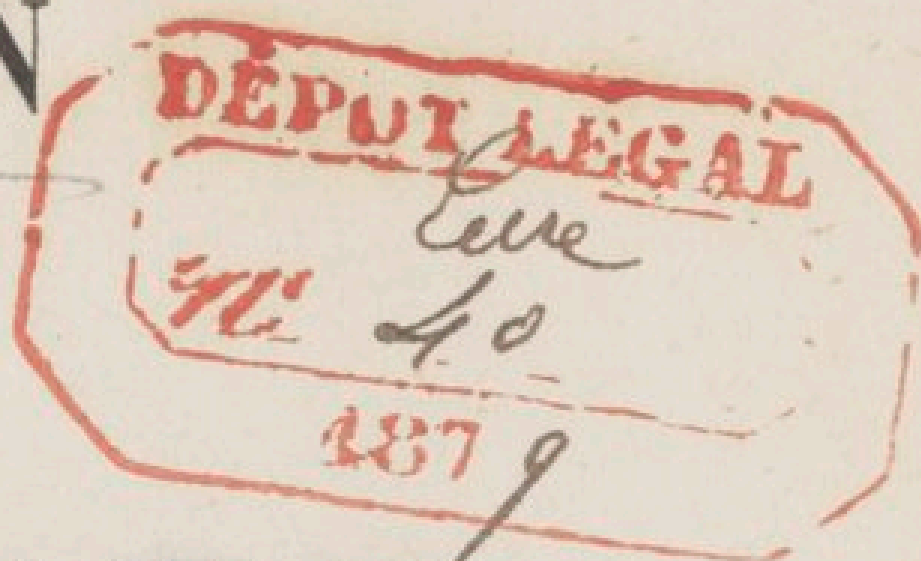 N
DÉPOT LEGAL
Eure
Nº 40
1879